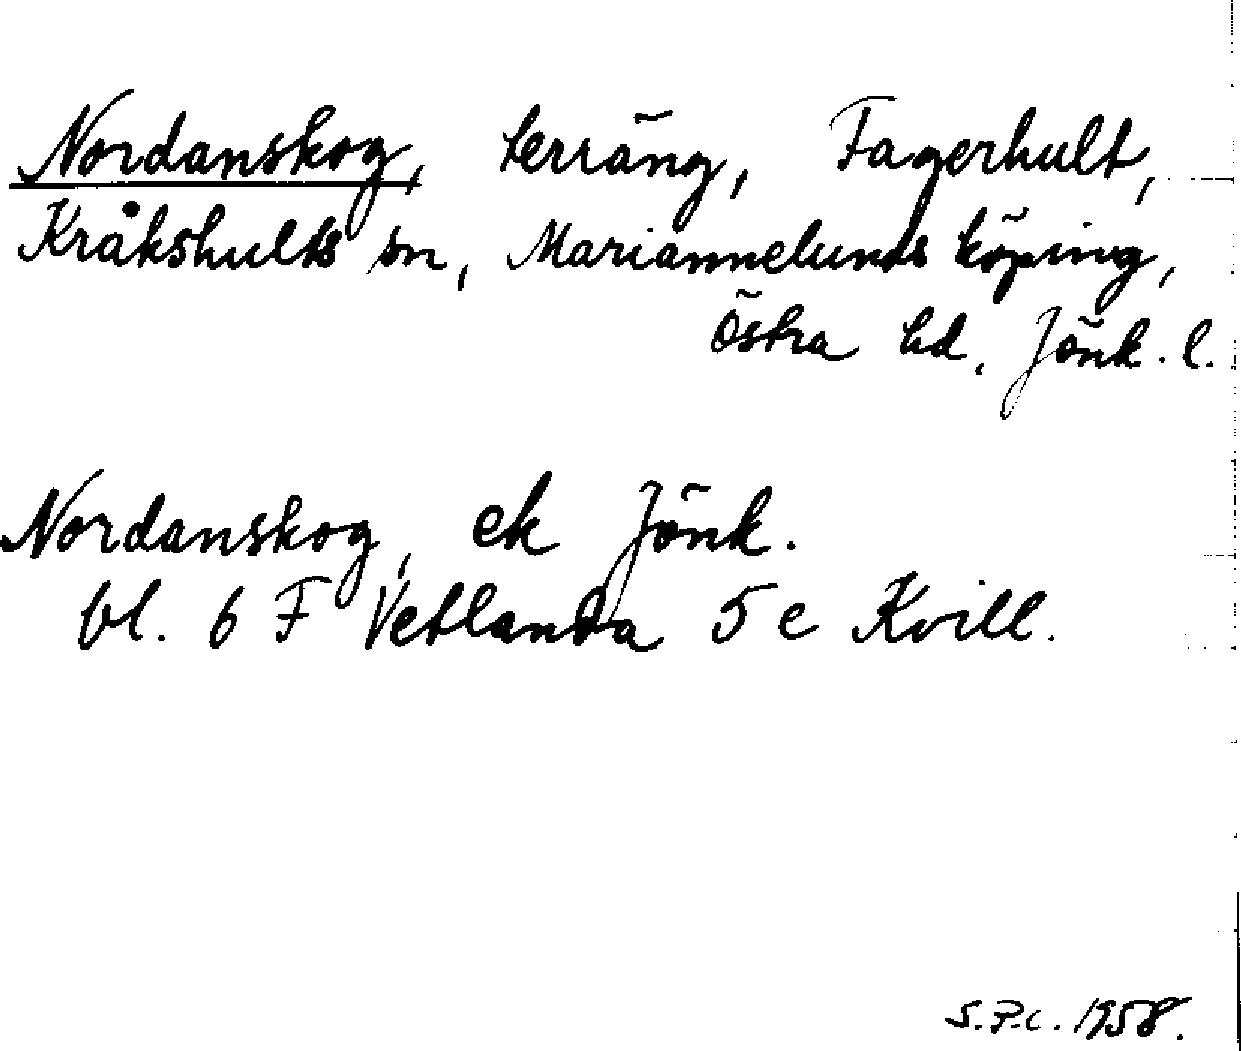 Nordanskog, terräng, Fagerhult,
Kråkshults sn, Mariannelunds köping,
Östra hd, Jönk. l.
Nordanskog, ek Jönk.
bl. 6 F Vetlanda 5 e Kvill.
S.P.C. 1958.